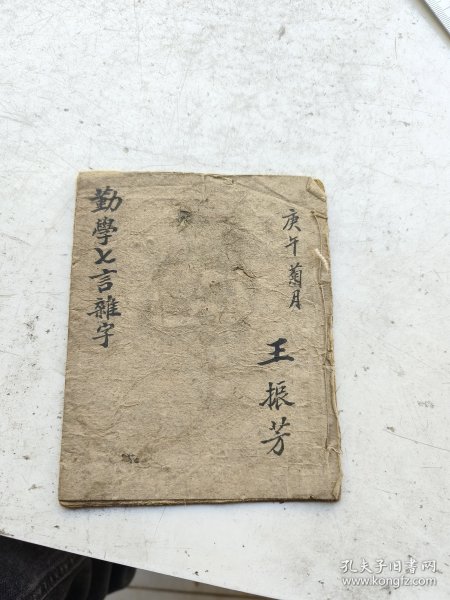 庚午菊月
王振芳
勤學七言雜字
孔夫子旧书网
www.kongfz.com